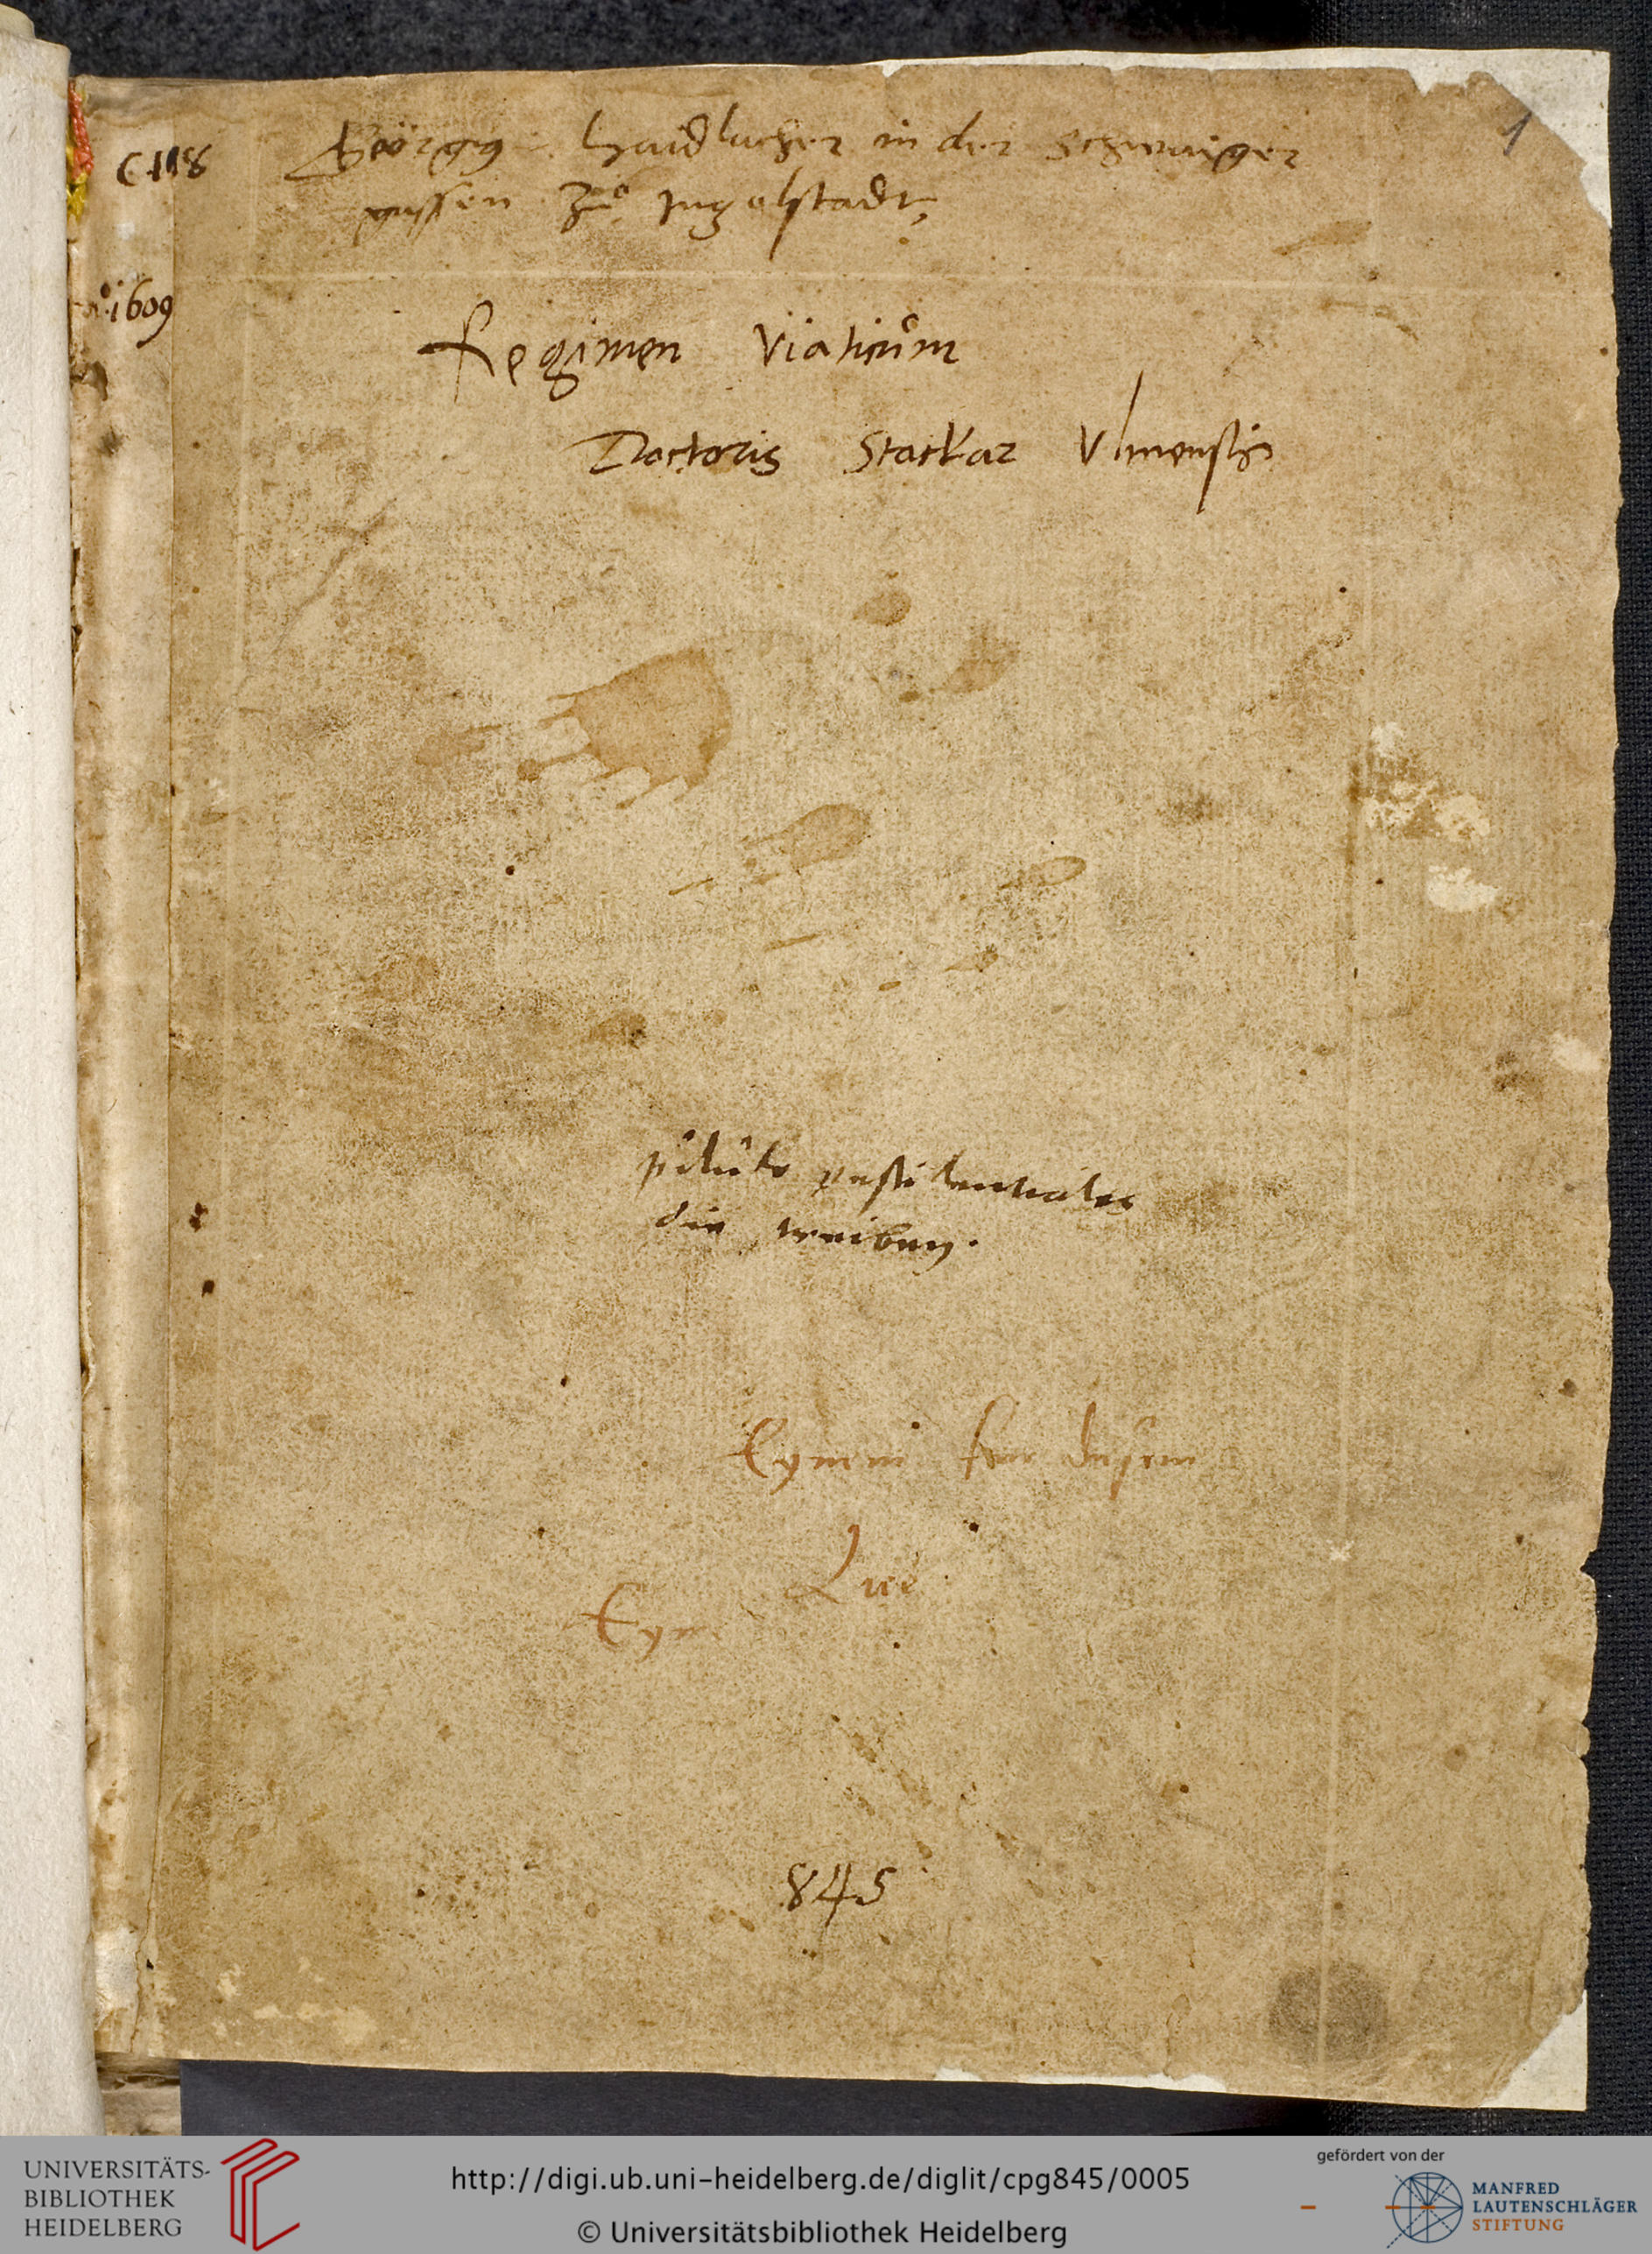 C. 118
Geörgg Haidlucher in der Schwaiger
gassen Zů Ingolstadt
1
1609
Regimen Viaticům
Doctoris Stockar Vlmensis
pilule pestilentiales
die treiben.
845
UNIVERSITÄTS-
BIBLIOTHEK
HEIDELBERG
http://digi.ub.uni-heidelberg.de/diglit/cpg845/0005
© Universitätsbibliothek Heidelberg
gefördert von der
MANFRED
LAUTENSCHLÄGER
STIFTUNG